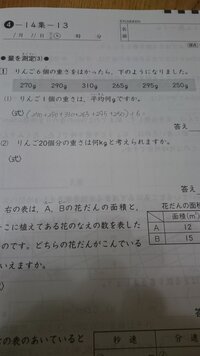 ④－14集－13
名前
●量を測定(3)●
1 りんご6個の重さをはかったら、下のようになりました。
270g 290g 310g 265g 295g 250g
(1) りんご1個の重さは、平均何gですか。
(式)(270+290+310+265+295+250)÷6=
答え
(2) りんご20個分の重さは何kgと考えられますか。
(式)
答え
右の表は、A、Bの花だんの面積と、
こに植えてある花のなえの数を表した
のです。どちらの花だんがこんでいる
いえますか。
花だんの面
面積(m²)
A 12
B 15
の表のあいているところ
秒速 分速